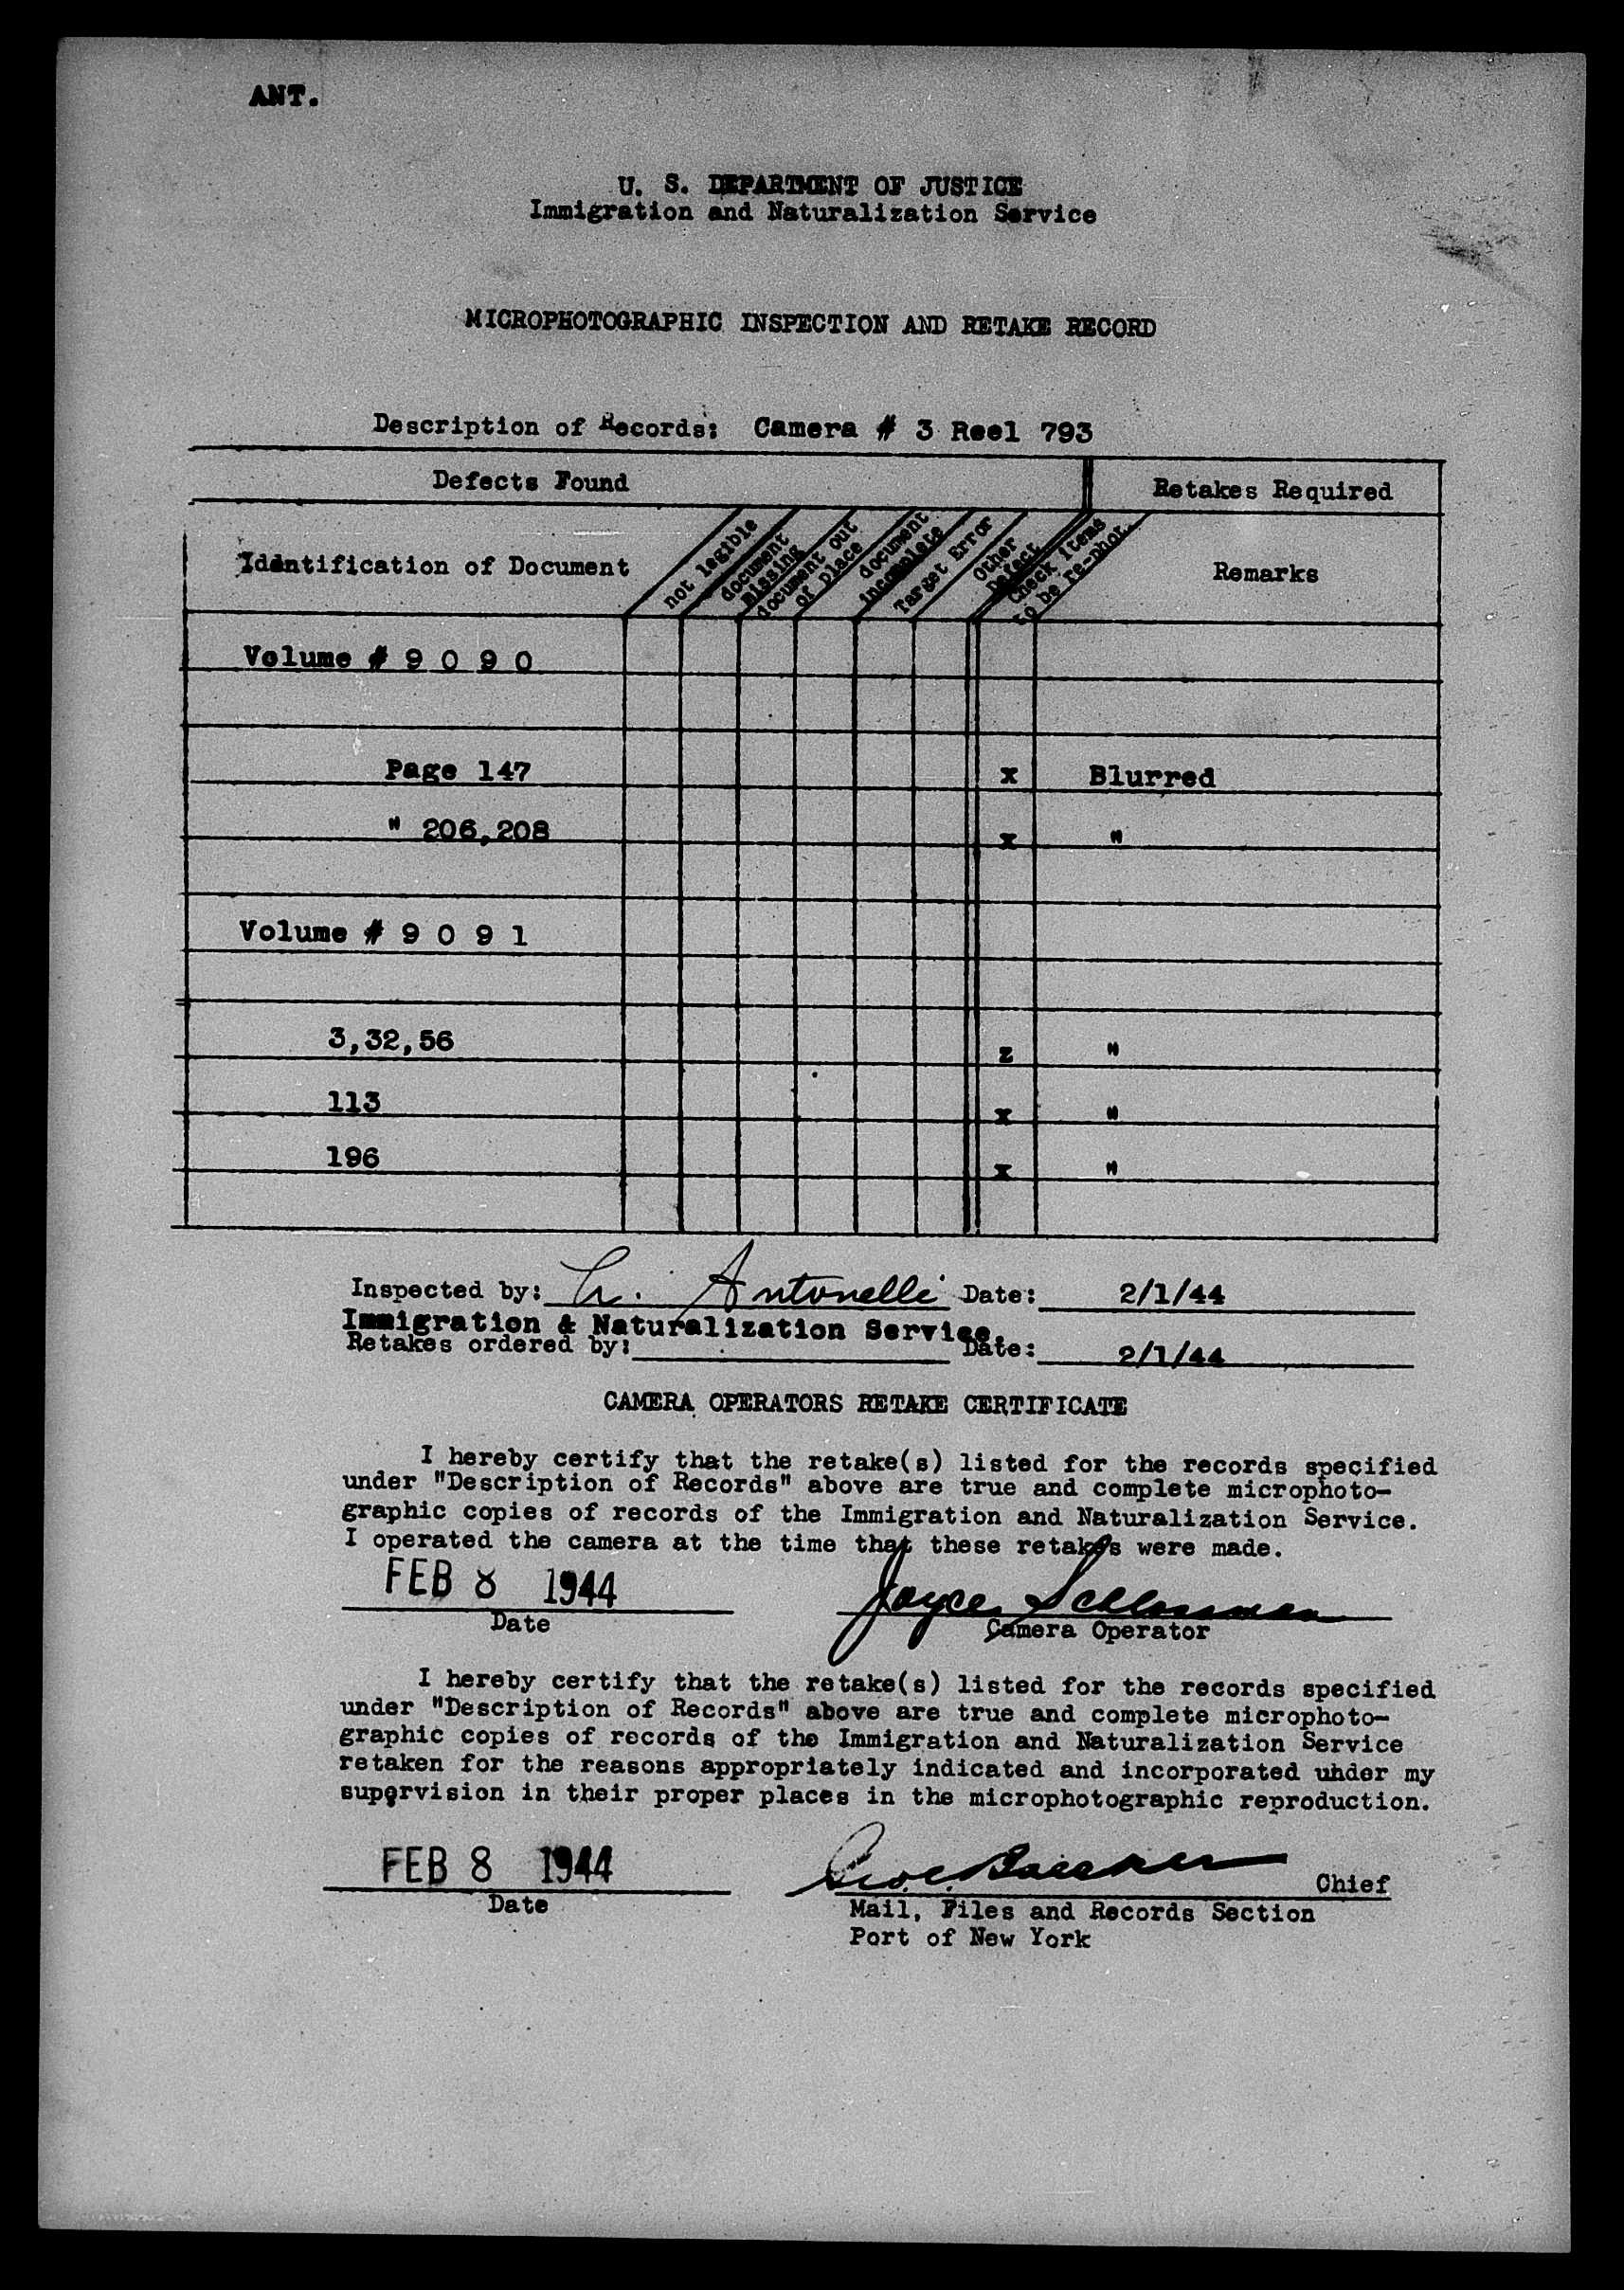 ANT.
U. S. DEPARTMENT OF JUSTICE
Immigration and Naturalization Service
MICROPHOTOGRAPHIC INSPECTION AND RETAKE RECORD
Description of Records: Camera # 3 Reel 793
Defects Found
Retakes Required
Identification of Document
not legible
document
missing
document out
of place
document
incomplete
Target Error
Other
Defect
Check items
to be re-phot.
Remarks
Volume # 9 0 9 0
Page 147 x Blurred
" 206,208 x "
Volume # 9 0 9 1
3,32,56 z "
113 x "
196 x "
Inspected by: Antonelli Date: 2/1/44
Immigration & Naturalization Service.
Retakes ordered by: Date: 2/1/44
CAMERA OPERATORS RETAKE CERTIFICATE
I hereby certify that the retake(s) listed for the records specified
under "Description of Records" above are true and complete microphoto-
graphic copies of records of the Immigration and Naturalization Service.
I operated the camera at the time that these retakes were made.
FEB 8 1944 Joyce
Date Camera Operator
I hereby certify that the retake(s) listed for the records specified
under "Description of Records" above are true and complete microphoto-
graphic copies of records of the Immigration and Naturalization Service
retaken for the reasons appropriately indicated and incorporated uhder my
supervision in their proper places in the microphotographic reproduction.
FEB 8 1944 Chief
Date Mail, Files and Records Section
Port of New York